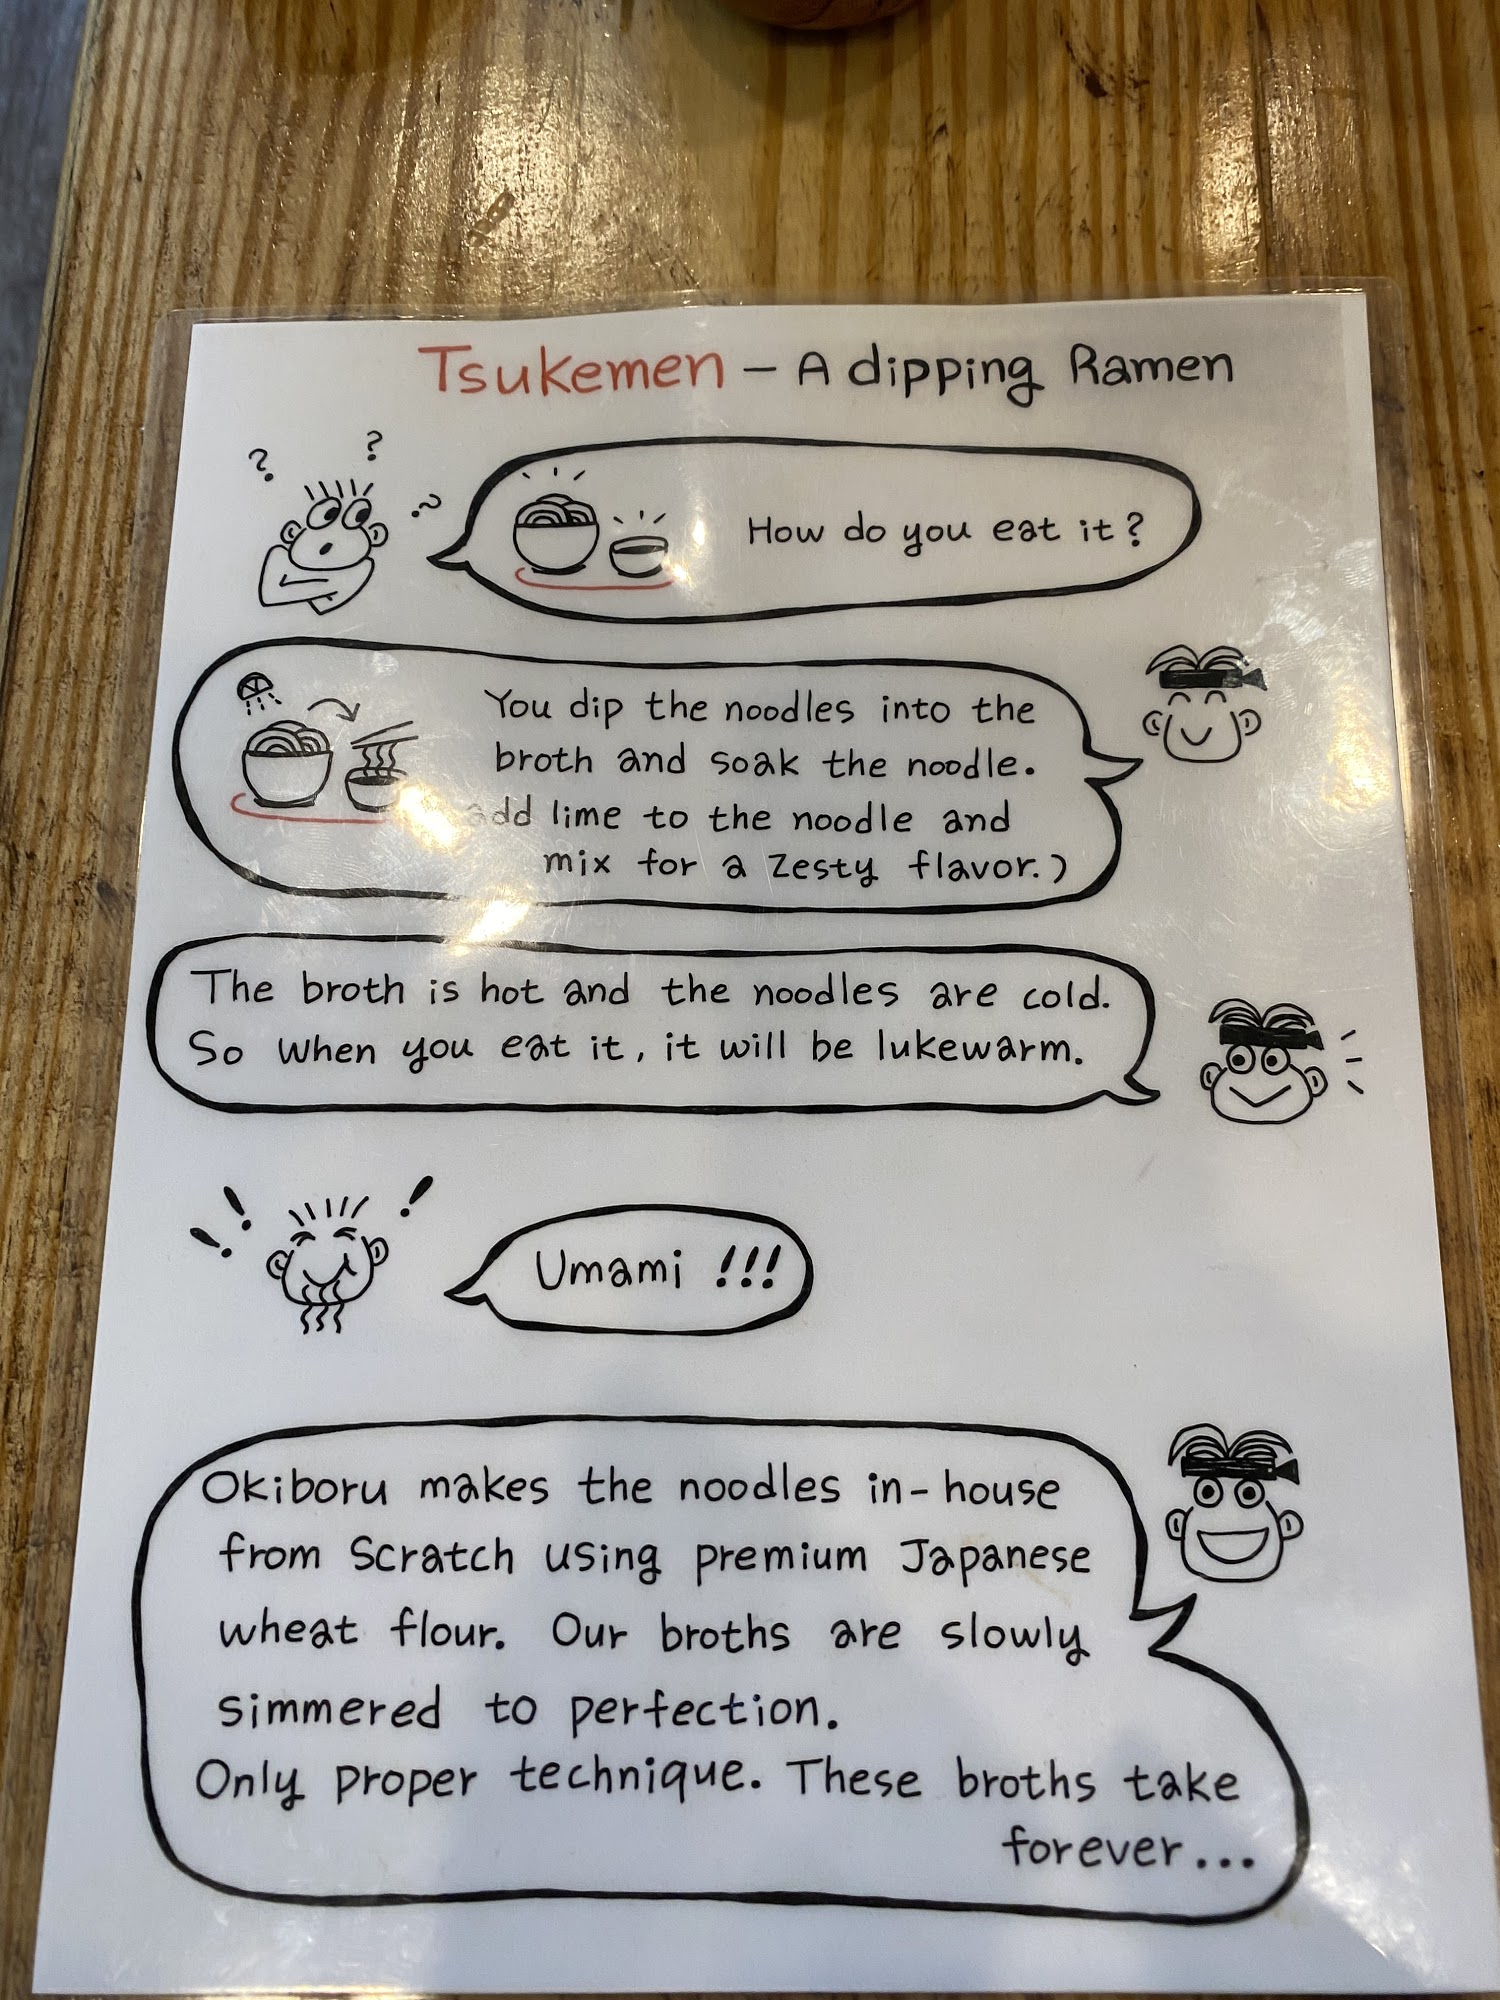 Tsukemen – A dipping Ramen
? ? ?
How do you eat it?
You dip the noodles into the
broth and soak the noodle.
add lime to the noodle and
mix for a zesty flavor.)
The broth is hot and the noodles are cold.
So when you eat it, it will be lukewarm.
! ! !
Umami !!!
Okiboru makes the noodles in-house
from scratch using premium Japanese
wheat flour. Our broths are slowly
simmered to perfection.
Only proper technique. These broths take
forever...